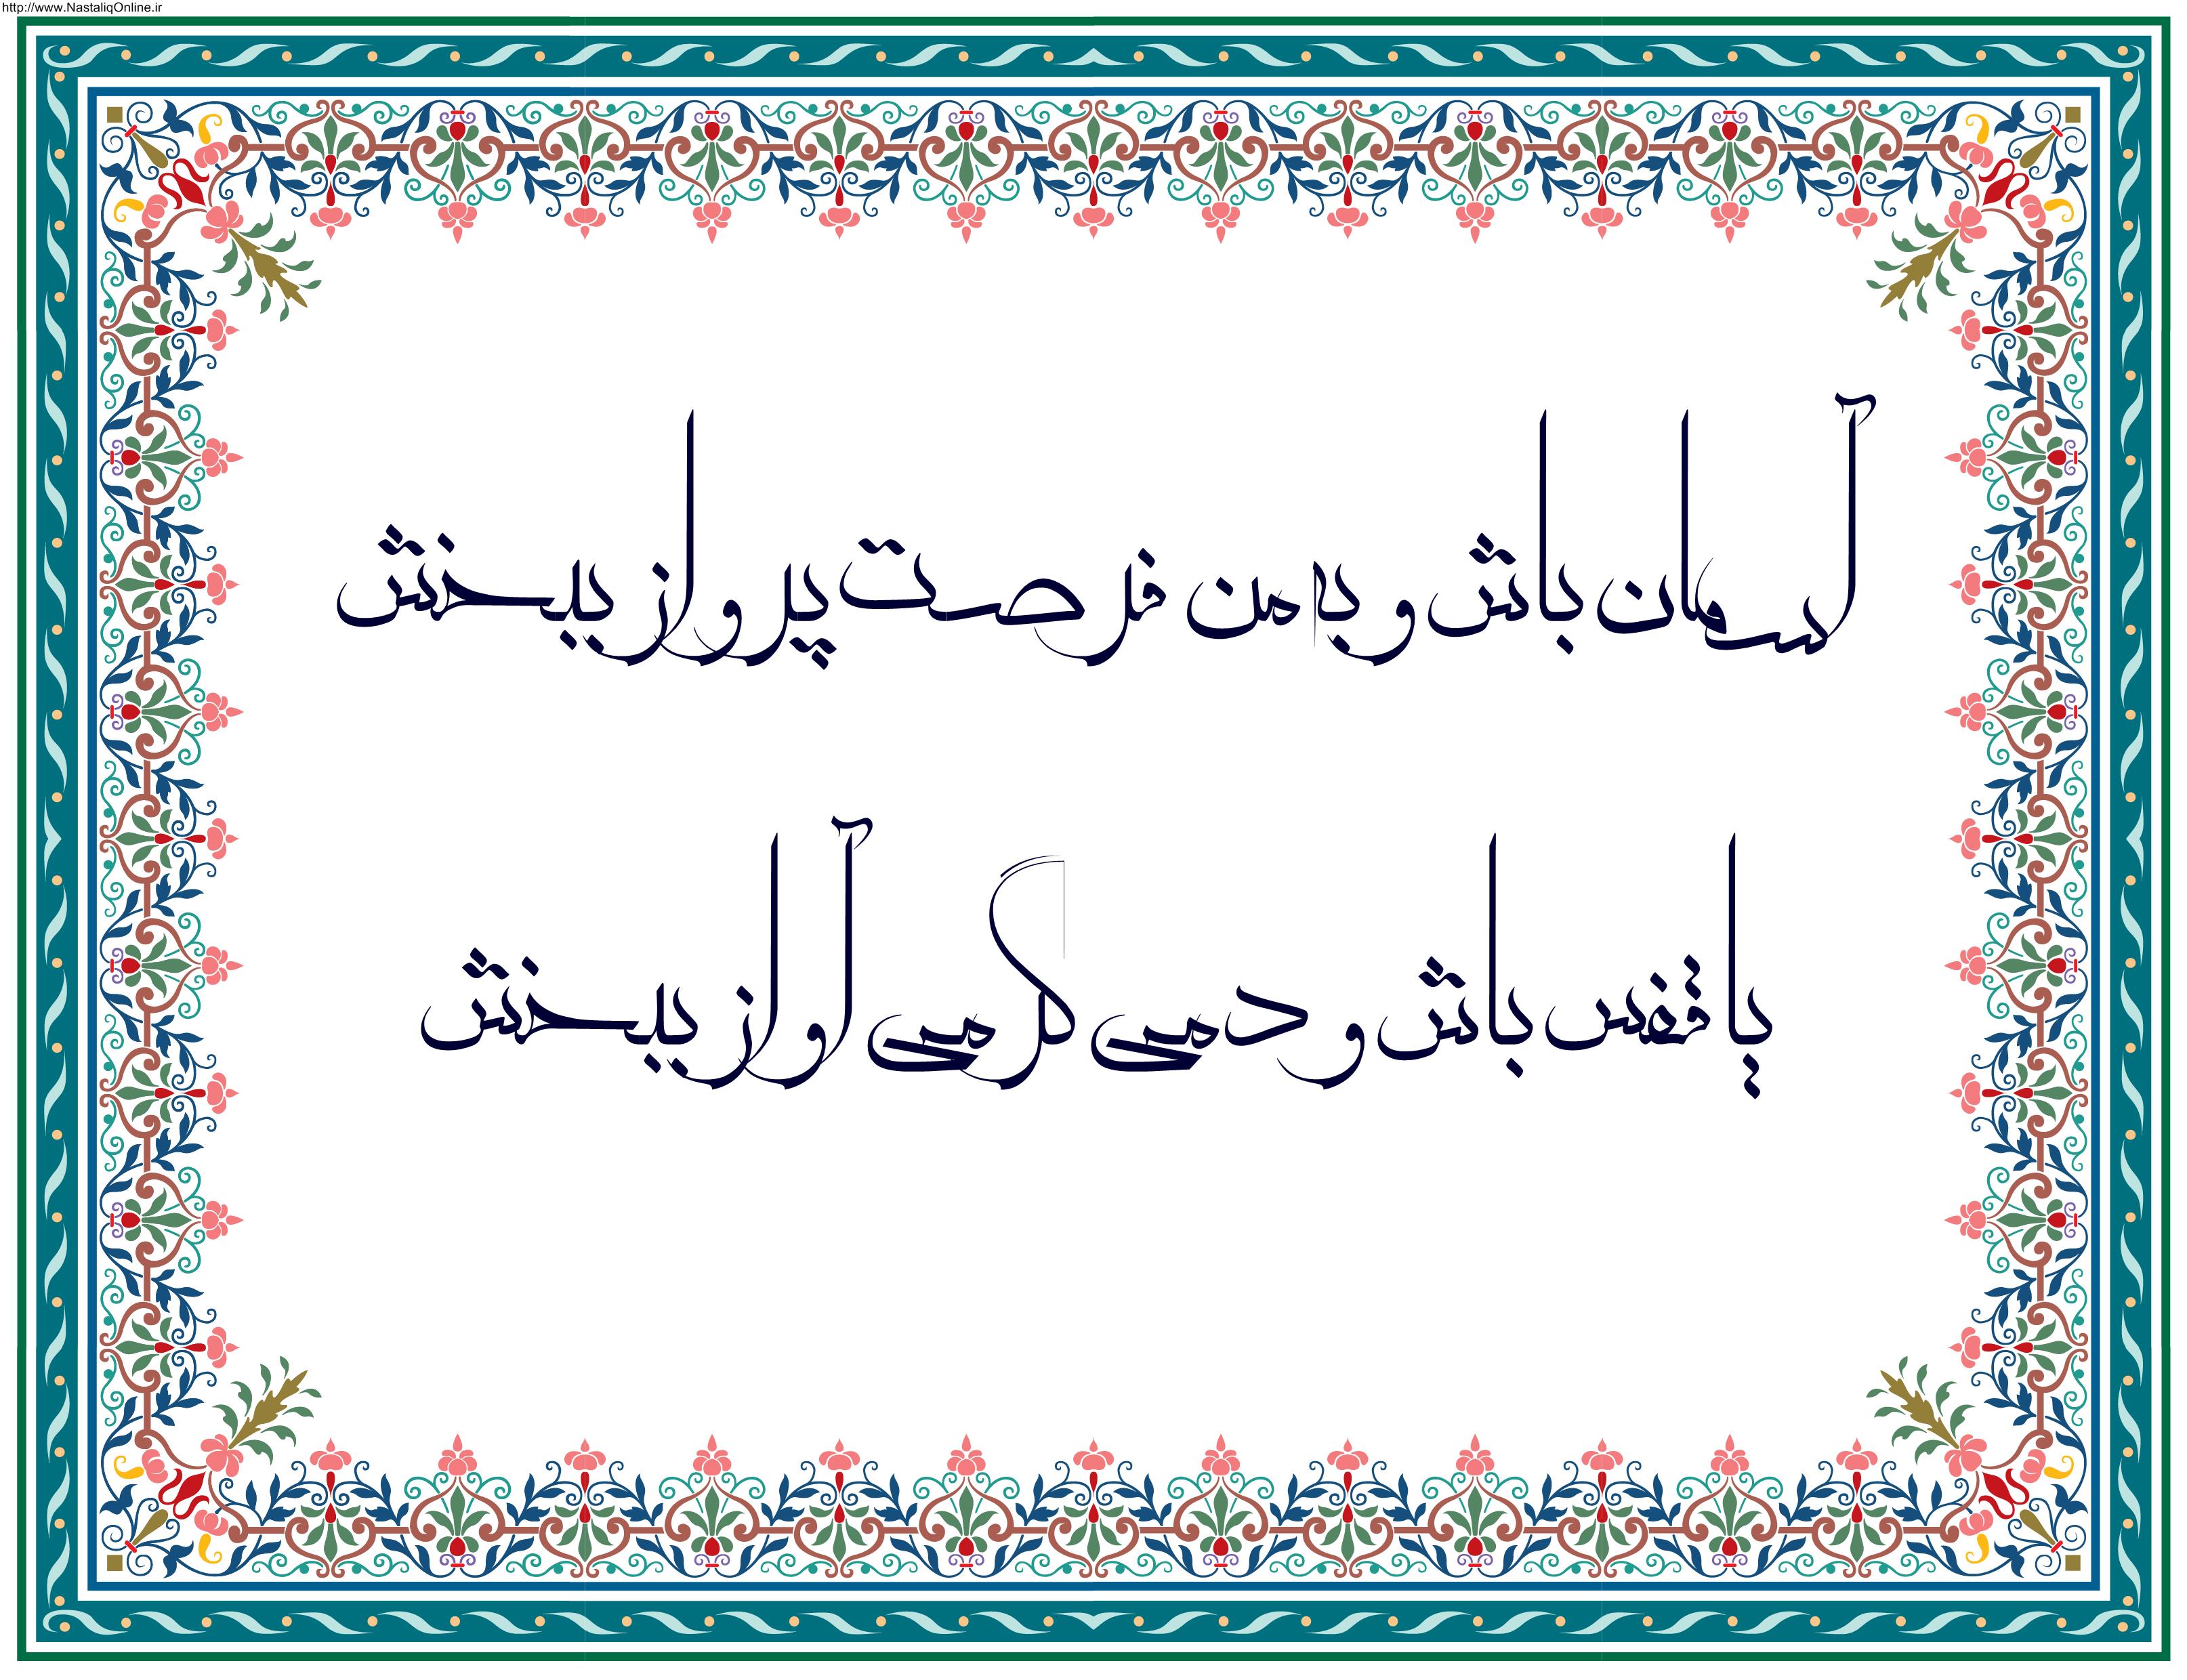 http://www.NastaliqOnline.ir
آسمان باش و به من فرصت پرواز ببخش
یا قفس باش و دمی گرمی آواز ببخش